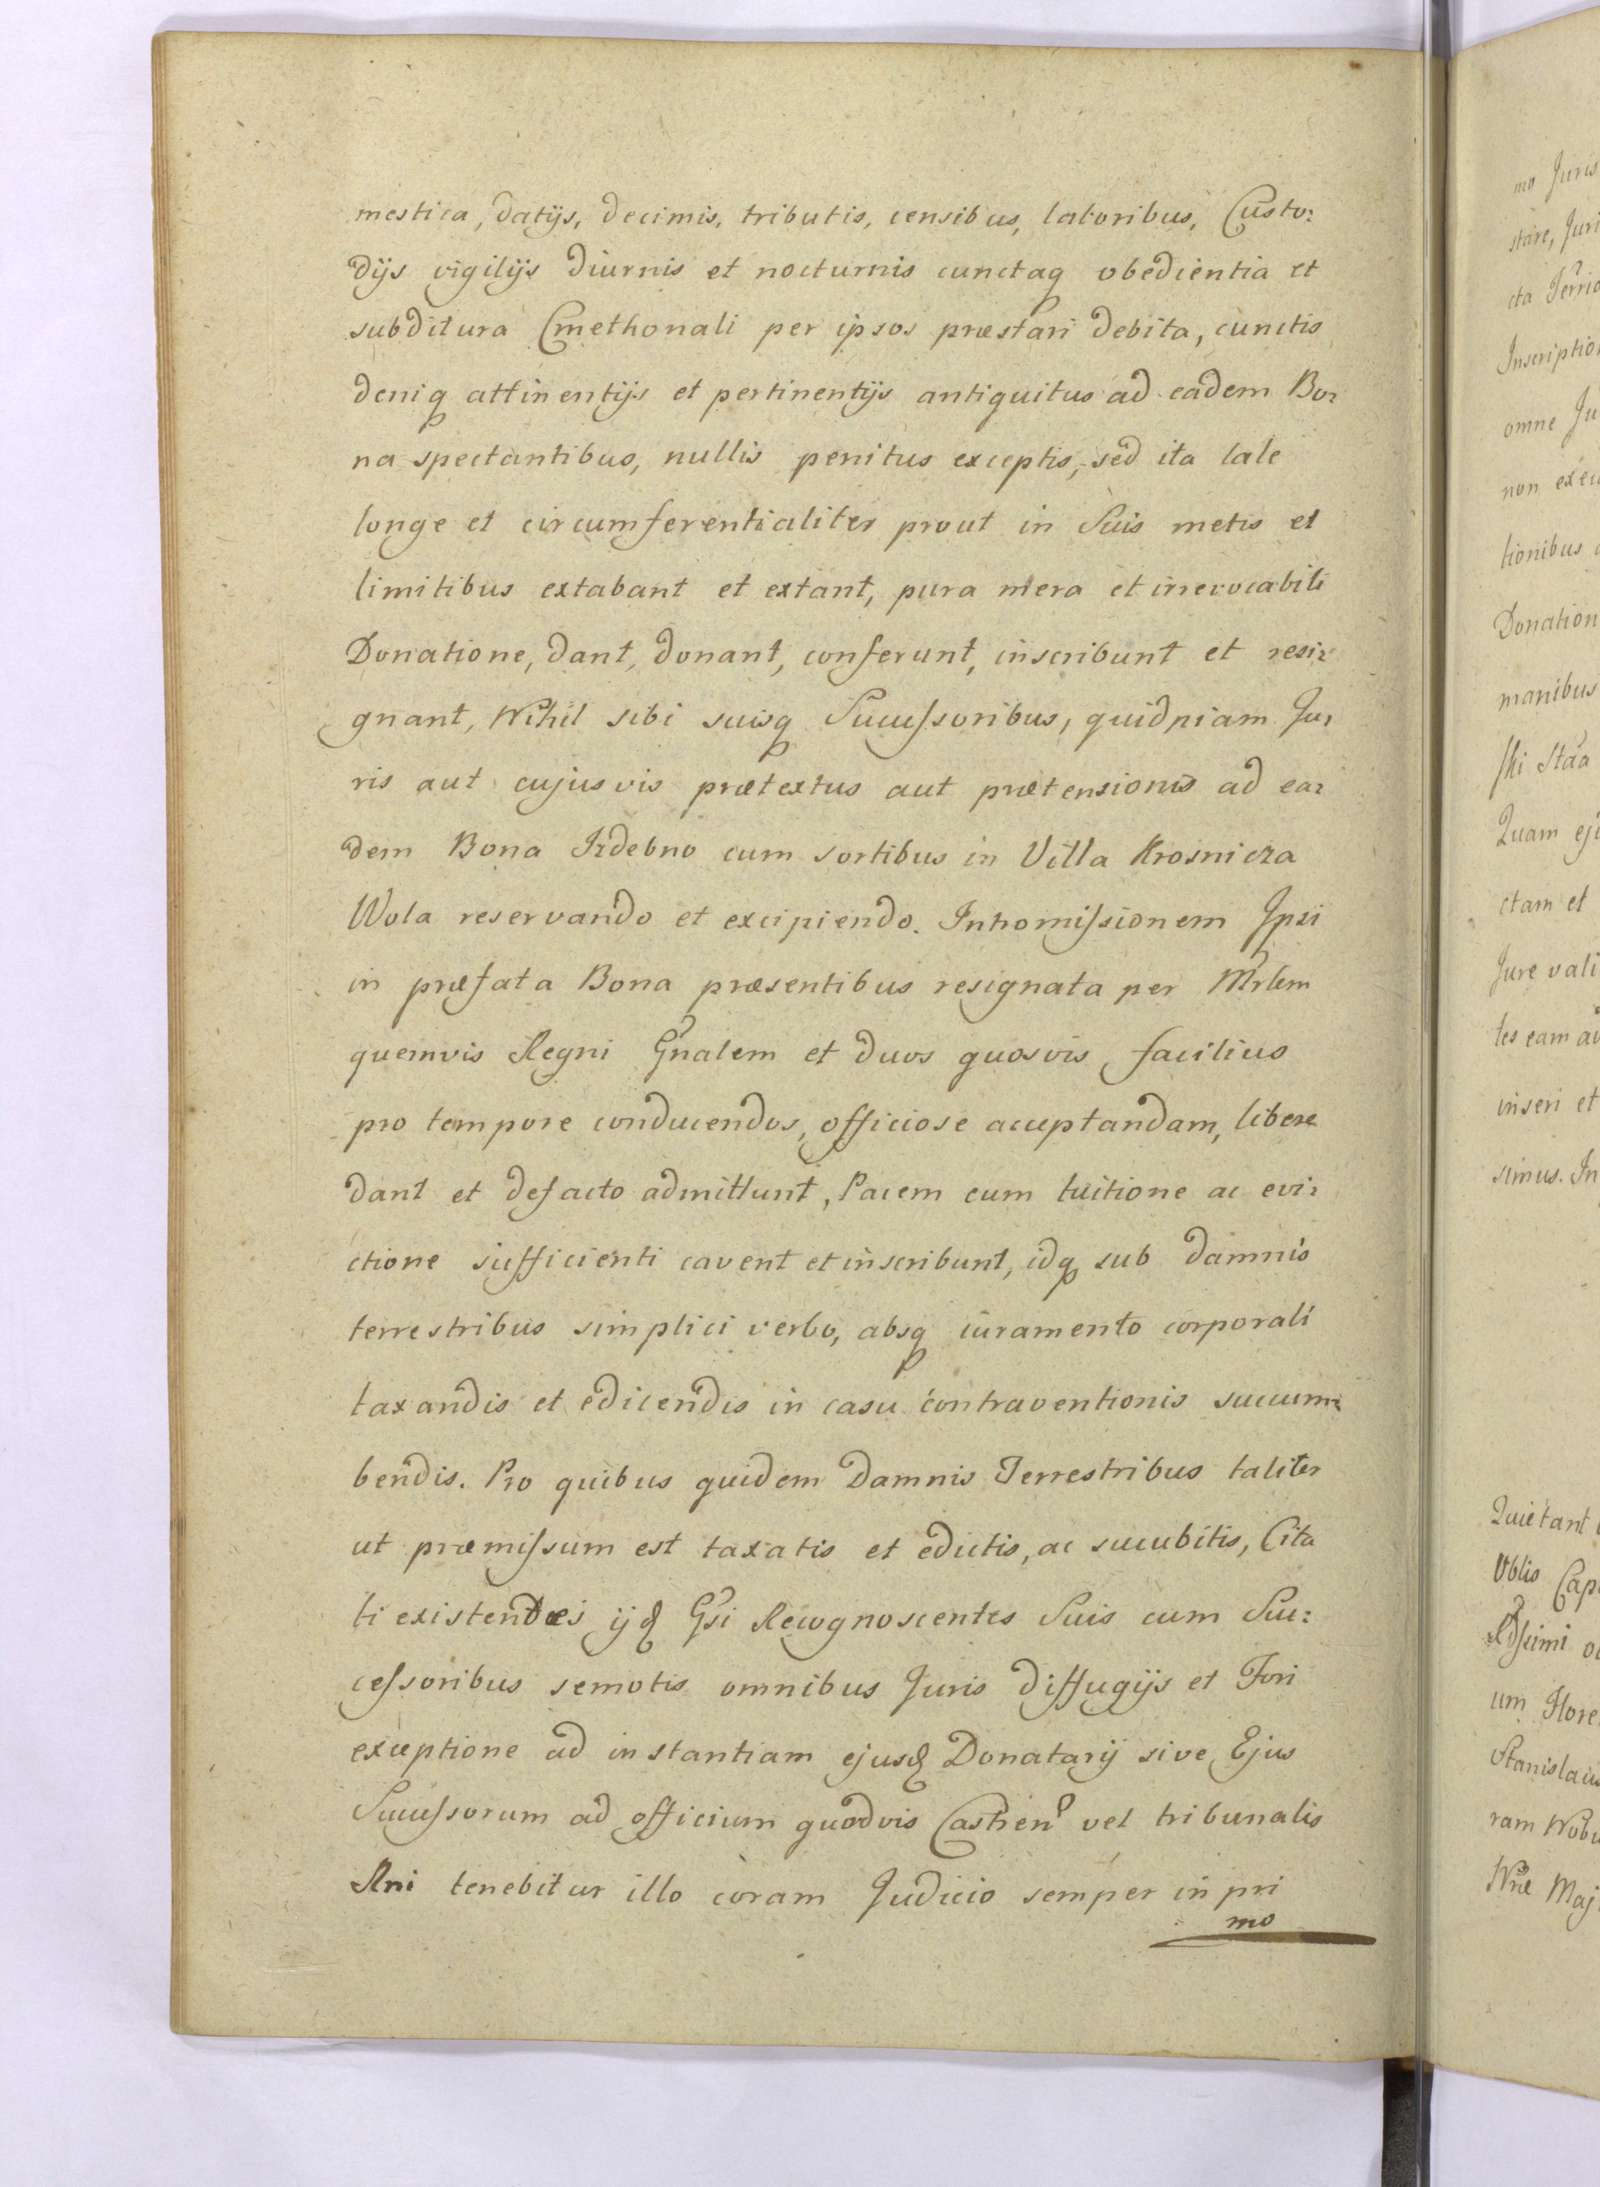 mestica, datijs, decimis, tributis, censibus, laboribus, Custo:
dijs vigilijs diurnis et nocturnis cunctaq obedientia et
subditura Cmethonali per ipsos præstari debita, cunctis
deniq attinentijs et pertinentijs antiquitus ad eadem Bo:
na spectantibus, nullis penitus exceptis, sed ita late
longe et circumferentialiter prout in Suis metis et
limitibus extabant et extant, pura mera et irrevocabili
Donatione, dant, donant, conferunt, inscribunt et resi:
gnant, Nihil sibi suisq Sucessoribus, quidpiam Ju:
ris aut cujusvis prætextus aut prætensionis ad ea:
dem Bona Izdebno cum sortibus in Villa Krosnicza
Wola reservando et excipiendo. Intromissionem Ipsi
in præfata Bona præsentibus resignata per Mrlem
quemvis Regni Gnalem et duos quosvis facilius
pro tempore conducendos, officiose acceptandam, libere
dant et defacto admittunt, Pacem cum tuitione ac evi:
ctione sufficienti cavent et inscribunt, idq sub damnis
terrestribus simplici verbo, absq iuramento corporali
taxandis et edicendis in casu contraventionis succum:
bendis. Pro quibus quidem Damnis Terrestribus taliter
ut præmissum est taxatis et edictis, ac sucubitis, Cita
ti existentes ijd Gsi Recognoscentes Suis cum Suc:
cessoribus semotis omnibus Juris diffugijs et Fori
exceptione ad instantiam ejusd Donatarij sive Ejus
Sucessorum ad officium quodvis Castren vel tribunalis
Rni tenebitur illo coram Judicio semper in pri
mo
mo Juris
stare, Juri
cta Terri
Inscriptio
omne Ju
non exec
tionibus
Donation
manibus
ski Staa
Quam ej
ctam et
Jure vali
tes eam
inseri et
simus. In
Quietant
Oblis Cap
um Flore
Stanislau
ram Wob
Maj